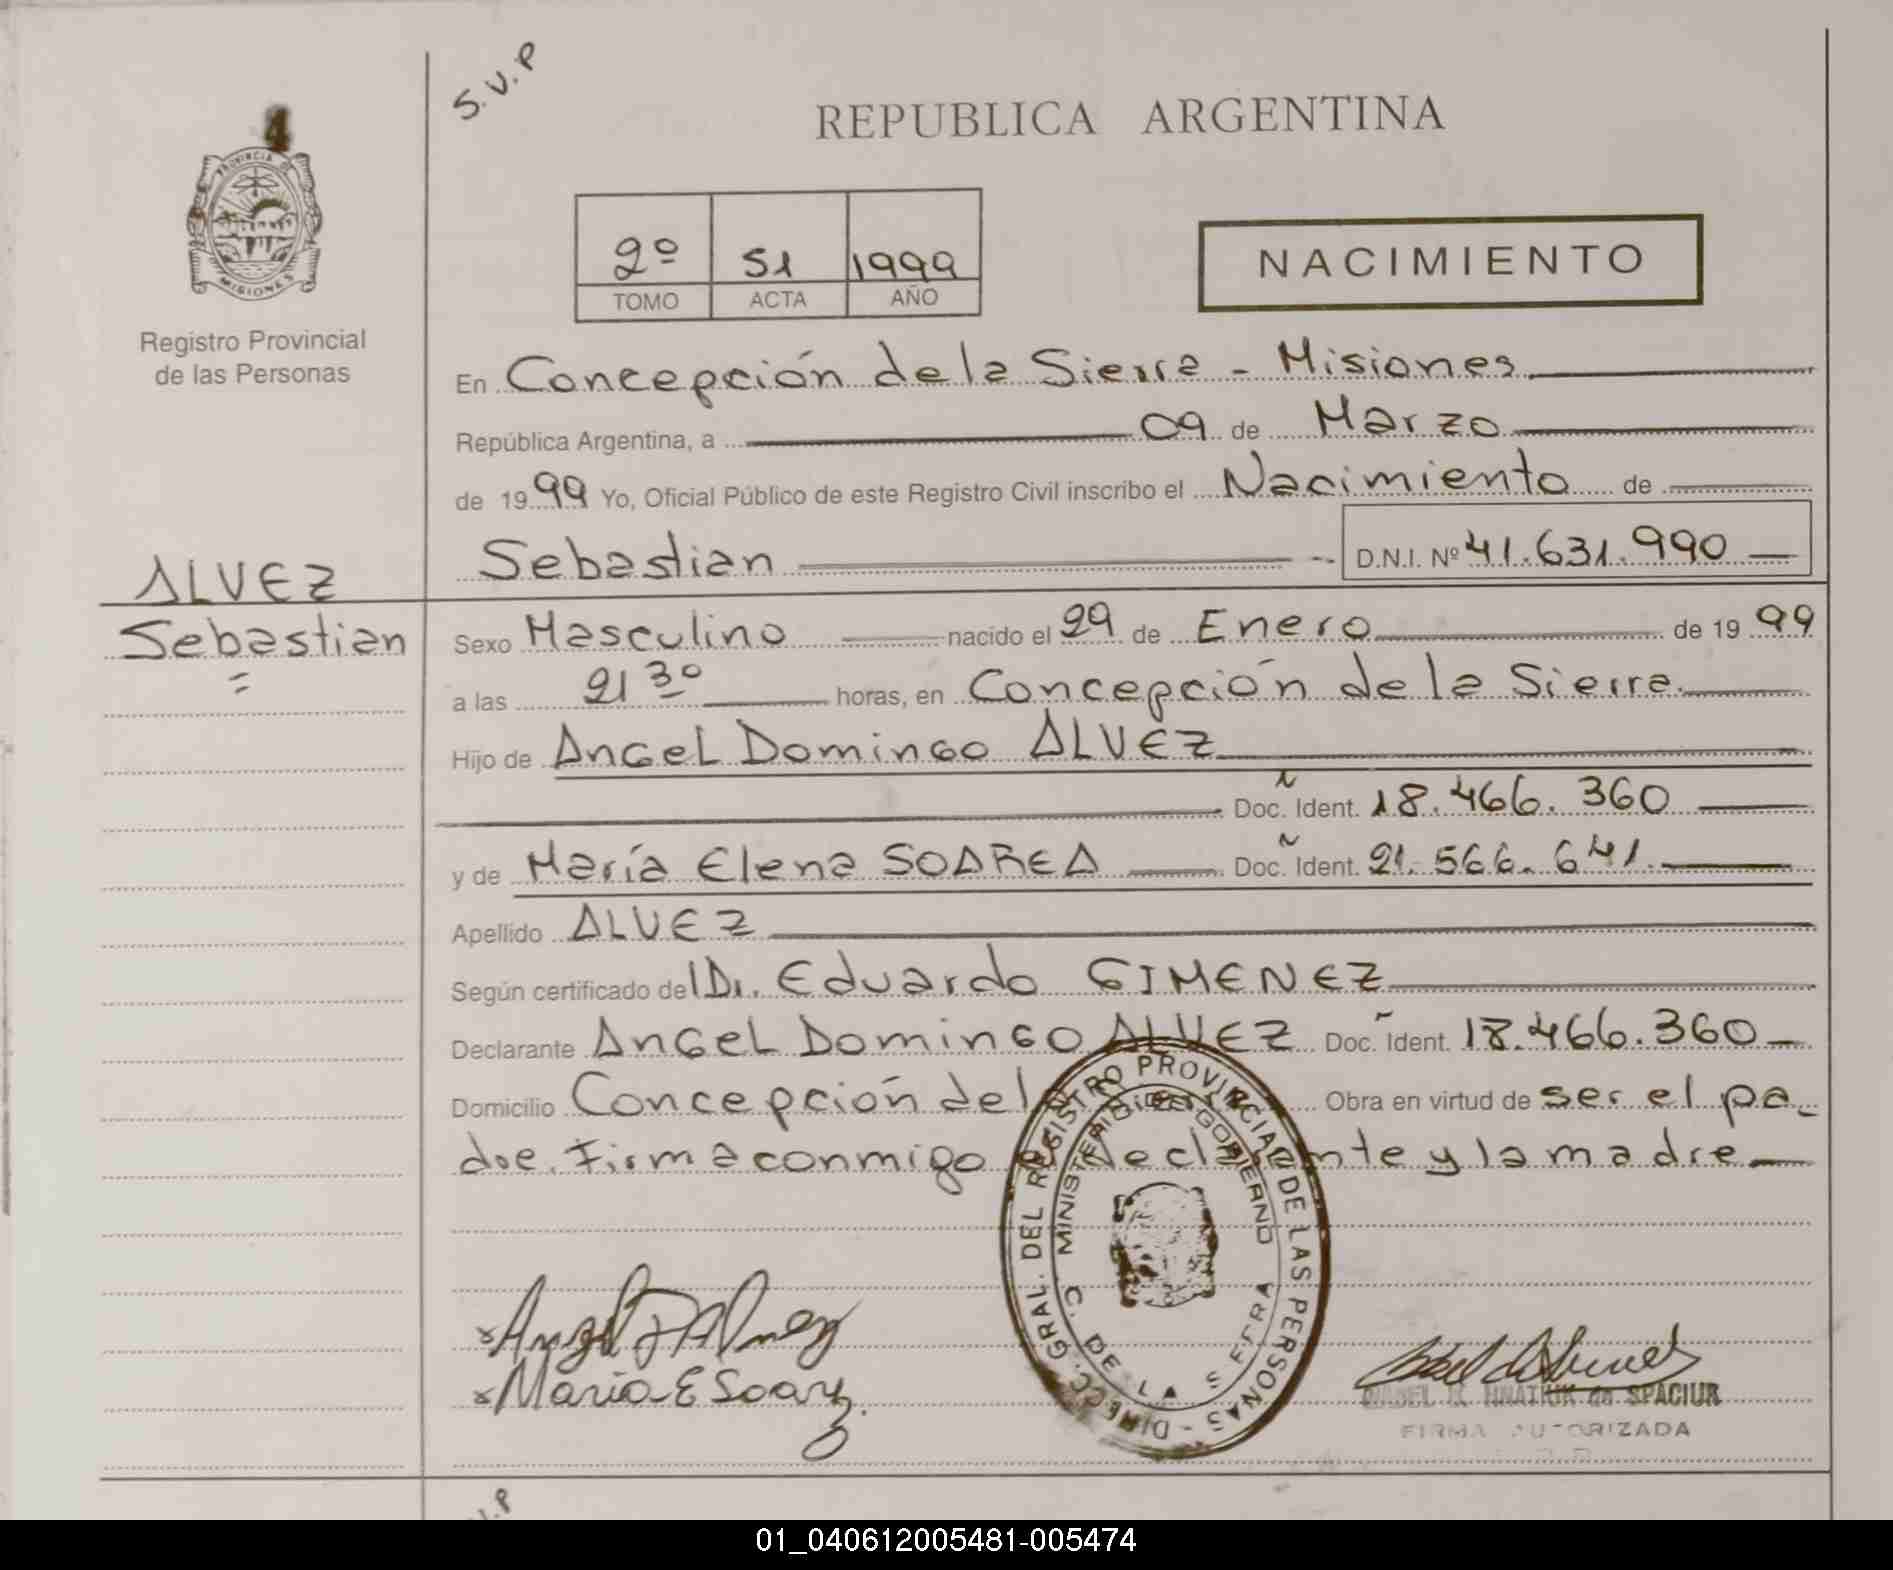 S.V.P
4
PROVINCIA DE
MISIONES
REPUBLICA ARGENTINA
2º 51 1999
TOMO ACTA AÑO
NACIMIENTO
Registro Provincial
de las Personas
En Concepción de la Sierra - Misiones
República Argentina, a 09 de Marzo
de 1999 Yo, Oficial Público de este Registro Civil inscribo el Nacimiento de
Sebastian D.N.I. Nº 41.631.990
ALVEZ
Sebastian
Sexo Masculino nacido el 29 de Enero de 1999
a las 21 30 horas, en Concepción de la Sierra
Hijo de Angel Domingo ALVEZ
Doc. Ident. 18.466.360
y de María Elena SOAREA Doc. Ident. 21.566.641
Apellido ALVEZ
Según certificado del Dr. Eduardo GIMENEZ
Declarante Angel Domingo ALVEZ Doc. Ident. 18.466.360
Domicilio Concepción de la Sierra Obra en virtud de ser el pa-
dre. Firma conmigo el declarante y la madre
DIRECC. GRAL. DEL REGISTRO PROVINCIAL DE LAS PERSONAS
MINISTERIO DE GOBIERNO
C. DE LA SIERRA
x Angel D Alvez
x Maria E Soarez
ISABEL R. HNATIUK de SPACIUK
FIRMA AUTORIZADA
V.P
01_040612005481-005474